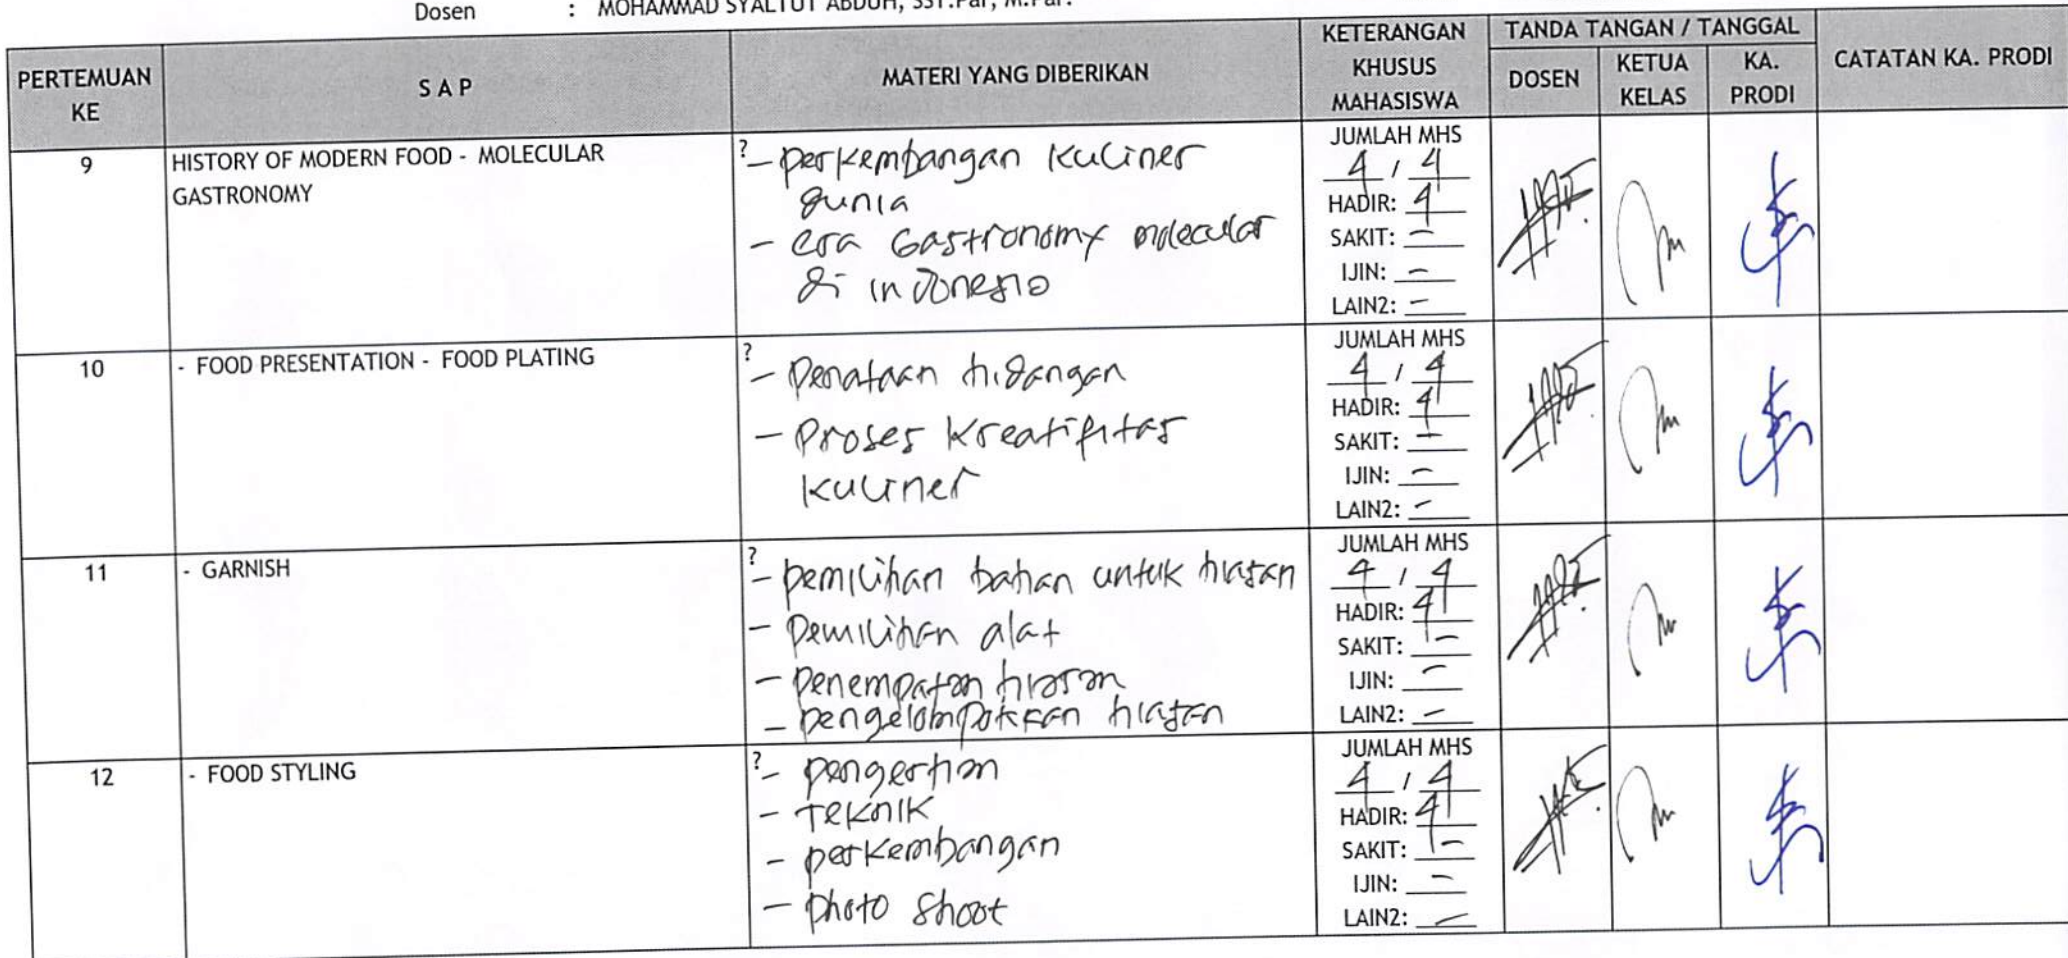 Dosen : MOHAMMAD SYALTUT ABDUH, SST.Par, M.Par.
PERTEMUAN KE
S A P
MATERI YANG DIBERIKAN
KETERANGAN KHUSUS MAHASISWA
TANDA TANGAN / TANGGAL
DOSEN
KETUA KELAS
KA. PRODI
CATATAN KA. PRODI
9
HISTORY OF MODERN FOOD - MOLECULAR
GASTRONOMY
?
- perkembangan kuliner
dunia
- era Gastronomy molecular
di indonesia
JUMLAH MHS
4 / 4
HADIR: 4
SAKIT: -
IJIN: -
LAIN2: -
10
- FOOD PRESENTATION - FOOD PLATING
?
- Penataan hidangan
- Proses Kreatifitas
kuliner
JUMLAH MHS
4 / 4
HADIR: 4
SAKIT: -
IJIN: -
LAIN2: -
11
- GARNISH
?
- pemilihan bahan untuk hiasan
- pemilihan alat
- penempatan hiasan
- pengelompokkan hiasan
JUMLAH MHS
4 / 4
HADIR: 4
SAKIT: -
IJIN: -
LAIN2: -
12
- FOOD STYLING
?
- pengertian
- Teknik
- perkembangan
- photo shoot
JUMLAH MHS
4 / 4
HADIR: 4
SAKIT: -
IJIN: -
LAIN2: -